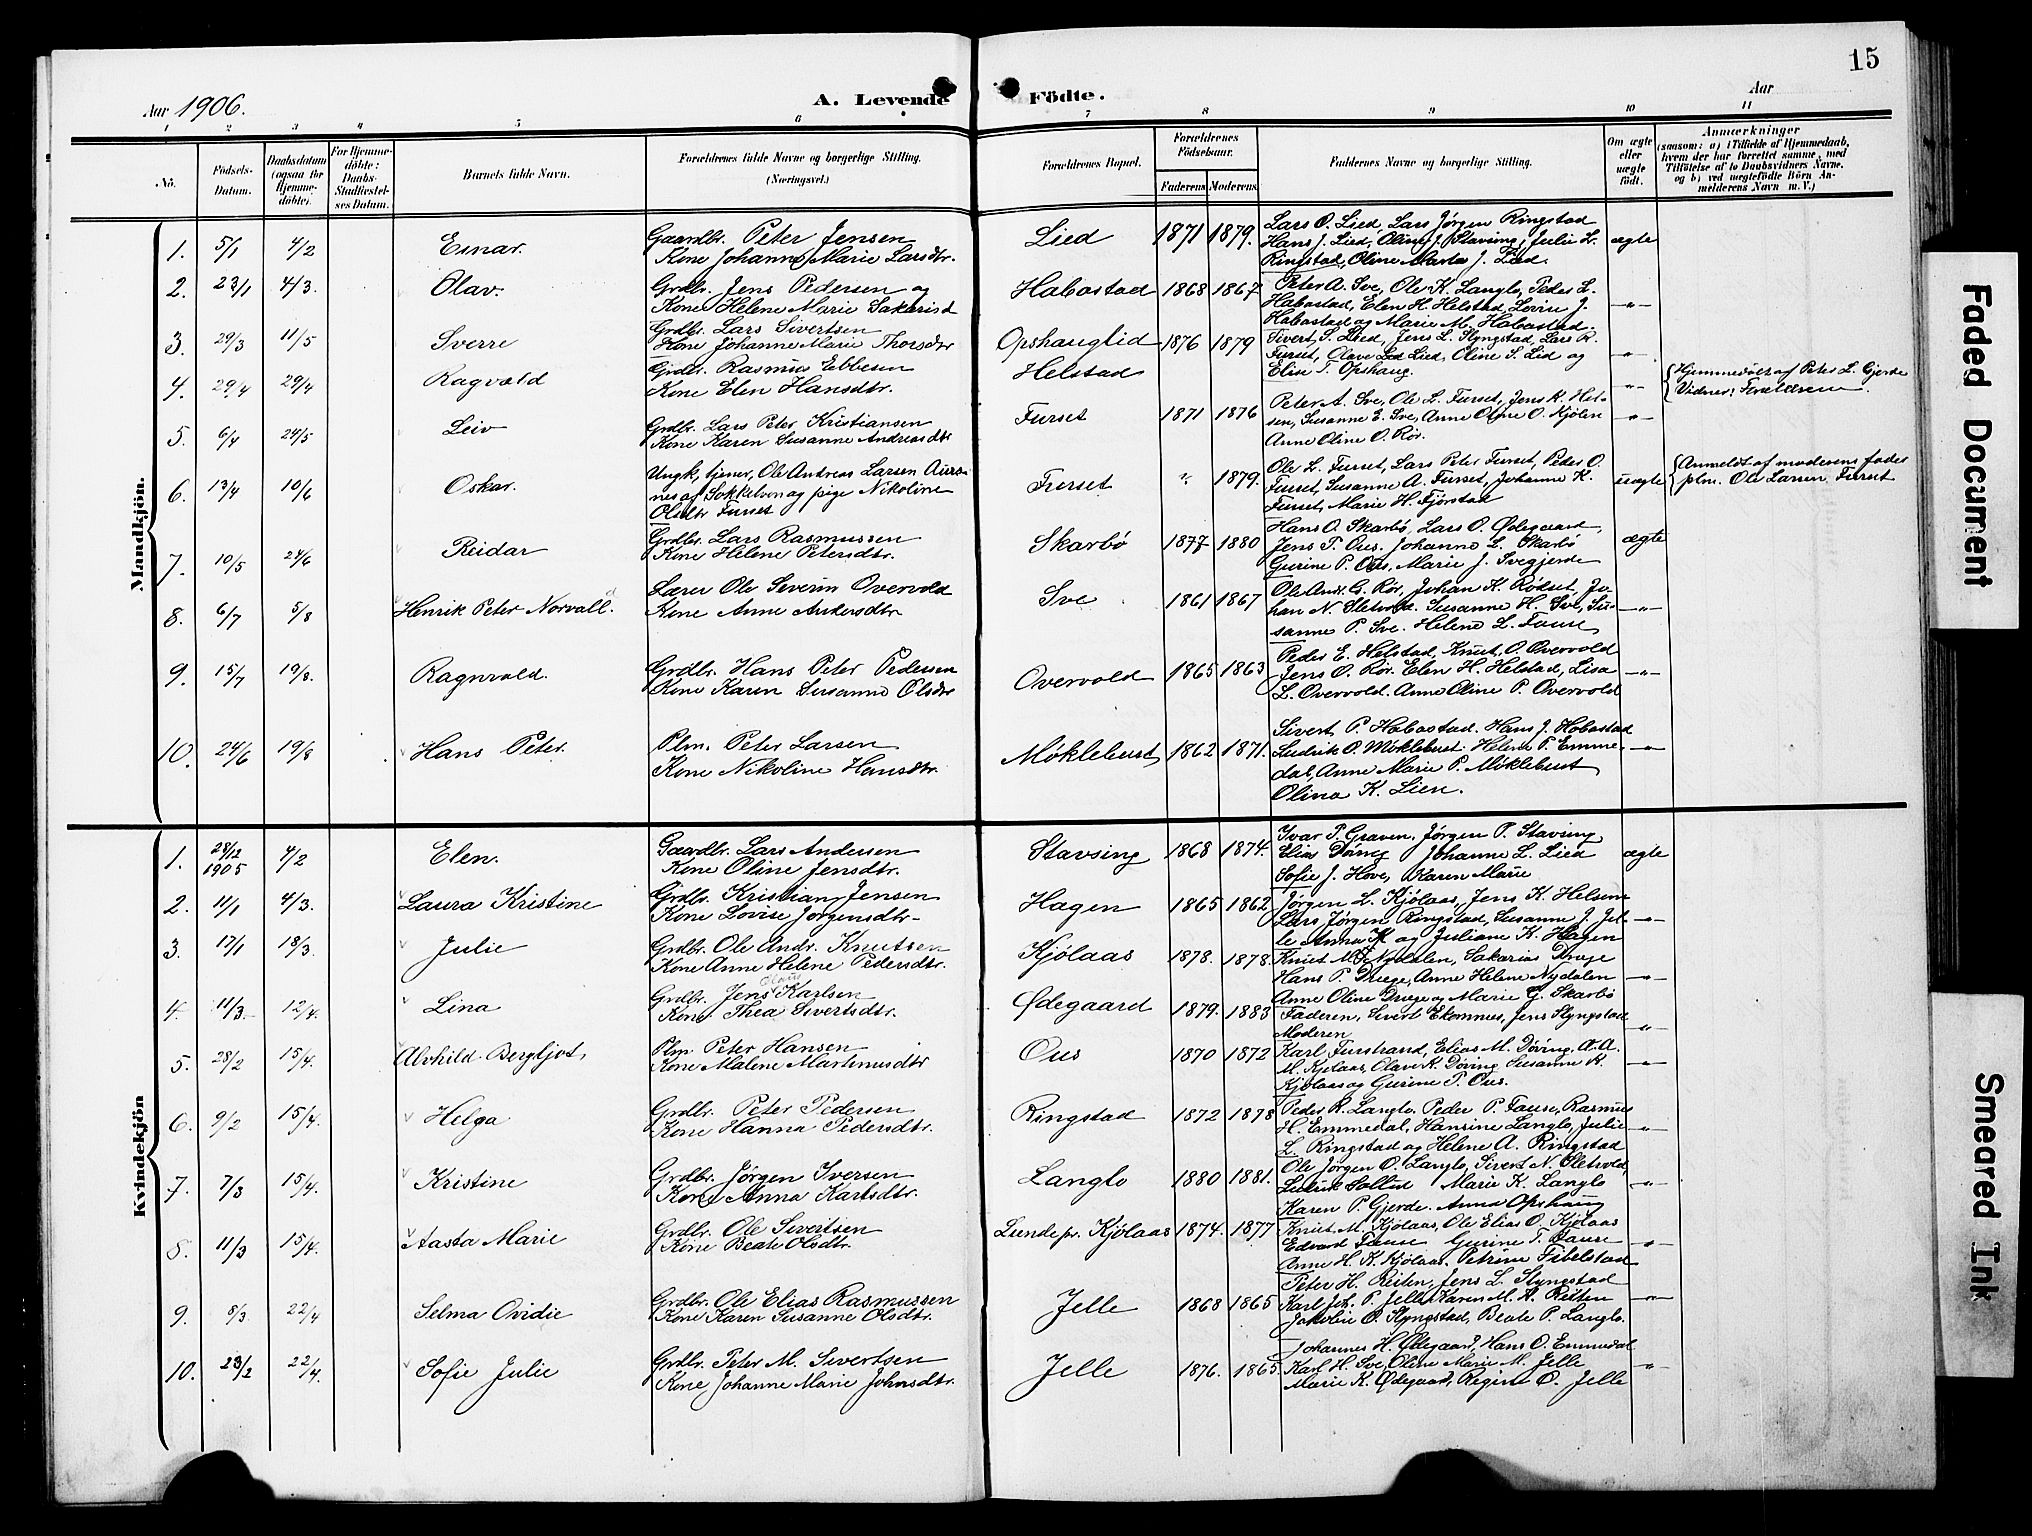 15
Aar 1906.
A. Levende Födte.
Aar
1 2 3 4 5 6 7 8 9 10 11
No.
Födsels-Datum.
Daabsdatum (ogsaa for Hjemmedöbte).
For Hjemmedöbte: Daabs-Stadfæstelses Datum.
Barnets fulde Navn.
Forældrenes fulde Navne og borgerlige Stilling. (Næringsvei.)
Forældrenes Bopæl.
Forældrenes Födselsaar.
Faderens. Moderens.
Faddernes Navne og borgerlige Stilling.
Om ægte eller uægte födt.
Anmærkninger
(saasom: a) i Tilfælde af Hjemmedaab, hvem der har forrettet samme, med Tilföielse af to Daabsvidners Navne. og b) ved uægtefödte Börn Anmelderens Navn m. V.)
Mandkjön.
1. 5/1 4/2 Einar. Gaardbr. Peter Jensen
Kone Johanne Marie Larsdtr. Lied 1871 1879. Lars O. Lied, Lars Jørgen Ringstad
Hans J. Lied, Oline J. Stavsing, Julie L. ægte
Ringstad, Oline Marta J. Lied.
2. 23/1 4/3. Olav. Grdbr. Jens Pedersen og
Kone Helene Marie Sakarisd Habostad 1868 1867 Peter A. Sve, Ole K. Langlo, Peder L.
Habostad, Elen H. Helstad, Lovise J. -"-
Habostad og Marie M. Habostad.
3. 29/3 11/5 Sverre Grdbr. Lars Sivertsen
Kone Johanne Marie Thorsdtr Opshauglid 1876 1879 Sivert S. Lied, Jens L. Slyngstad, Lars R.
Furset, Olave Lied, Oline S. Lid og -"-
Elise T. Opshaug.
4. 29/4 29/4 Ragvald Grdbr. Rasmus Ebbesen
Kone Elen Hansdtr. Helstad -"- Hjemmedöbt af Peter L. Gjerde
Vidner: Forældrene.
5. 6/4 24/5 Leiv Grdbr. Lars Peter Kristiansen
Kone Karen Susanne Andreasdtr Furset 1871 1876 Peter A. Sve, Ole L. Furset, Jens K. Hel-
sen, Susanne E. Sve, Anne Oline O. Kjølen -"-
Anne Oline O. Rør.
6. 13/4 10/6 Oskar. Ungk, tjener, Ole Andreas Larsen
nes af Sokkelven og pige Nikoline
Olsdtr Furset Furset " 1879. Ole L. Furset, Lars Peter Furset, Peder O.
Furset, Susanne A. Furset, Johanne K. uægte
Furset, Marie H. Fjørstad
Anmeldt af moderens fader
plm. Ole Larsen Furset
7. 10/5 24/6 Reidar Grdbr. Lars Rasmussen
Kone Helene Petersdtr. Skarbø 1877 1880 Hans O. Skarbø, Lars O. Ødegaard,
Jens P. Ous. Johanne L. Skarbø ægte
Gurine P. Ous, Marie J. Svegjerde
8. 6/7 5/8 Henrik Peter Norvall. Lærer Ole Severin Overvold
Kone Anne Andersdtr. Sve 1861 1867 Ole Andr. G. Rør, Johan K. Rødset, Jo-
han N. Sletvold. Susanne H. Sve, Su- -"-
sanne P. Sve. Helene L. Fause
9. 15/7 19/8. Ragnvald. Grdbr. Hans Peter Pedersen
Kone Karen Susanne Olsdtr Overvold 1865 1863 Peder E. Helstad, Knut O. Overvold
Jens O. Rør. Elen H. Helstad, Lisa -"-
L. Overvold. Anne Oline P. Overvold
10. 24/6 19/8 Hans Peter. Plm. Peter Larsen
Kone Nikoline Hansdtr. Møklebust 1862 1871. Sivert P. Habostad. Hans J. Habostad
Ludrik O. Møklebust. Helene P. Emme- -"-
dal, Anne Marie P. Møklebust
Olina K. Lien.
Kvindekjön
1. 28/12 1905 4/2 Elen. Gaardbr. Lars Andersen
Kone Oline Jensdtr. Stavsing 1868 1874. Ivar P. Graven, Jørgen P. Stavsing,
Elias Døving Johanne L. Lied ægte
Sofie J. Hove, Karen Marie
2. 11/1 4/3. Laura Kristine Grdbr. Kristian Jensen
Kone Lovise Jørgensdtr. Hagen 1865 1862 Jørgen L. Kjølaas, Jens K. Helsem
Lars Jørgen Ringstad, Susanne J. Jel- -"-
le Anna K og Juliane K. Hagen
3. 17/1 18/3. Julie Grdbr. Ole Andr. Knutsen
Kone Anne Helene Pedersdtr. Kjølaas 1878. 1878. Knut M. Nydalen, Sakarias Drage
Hans P. Drege, Anne Helene Nydalen -"-
Anne Oline Drege og Marie G. Skarbø
4. 11/3. 12/4. Lina Grdbr. Jens Karlsen
Kone Thea Sivertsdtr. Ødegaard 1879. 1883 Faderen, Sivert Ekornnes, Jens Slyngstad -"-
Moderen
5. 28/2 15/4. Alvhild Bergljot, Plm. Peter Hansen
Kone Malene Martinusdtr Ous 1870 1872 Karl Furstrand, Elias M. Døving, A.A.
M. Kjølaas, Olave K. Døving Susanne K. -"-
Kjølaas og Gurine T. Ous.
6. 9/2 15/4. Helga Grdbr. Peter Pedersen
Kone Hanna Pedersdtr. Ringstad 1872 1878 Peder K. Langlo, Peder P. Fause, Rasmus
H. Emmedal, Hansine Langlo, Julie -"-
L. Ringstad og Helene A. Ringstad
7. 7/3 15/4. Kristine Grdbr. Jørgen Iversen
Kone Anna Karlsdtr. Langlo 1880 1881. Ole Jørgen O. Langlo, Sivert N. Sletvold,
Ludrik Sollid Marie K. Langlo -"-
Karen P. Gjerde. Anna Opshaug
8. 11/3 15/4. Aasta Marie Grdbr. Ole Sivertsen
Kone Beate Olsdtr. Lunde pr. Kjølaas 1874. 1877 Knut M. Kjølaas, Ole Elias O. Kjølaas
Edvard Fause Gurine T. Fause -"-
Anne H. K. Kjølaas. Petrine Fibelstad
9. 8/3. 22/4 Selma Ovidie Grdbr. Ole Elias Rasmussen
Kone Karen Susanne Olsdtr. Jelle 1868 1865 Peter H. Reiten, Jens L. Slyngstad
Karl Joh. P. Jelle Karen M. A. Reiten -"-
Jakoline O. Slyngstad, Beate P. Langlo.
10. 23/2 22/4. Sofie Julie Grdbr. Peter M. Sivertsen
Kone Johanne Marie Johnsdtr. Jelle 1876. 1865 Johannes H. Ødegaard, Hans O. Emmedal
Karl H. Sve, Oline Marie M. Jelle -"-
Marie K. Ødegaard, Regine O. Jelle
Faded Document
Smeared Ink